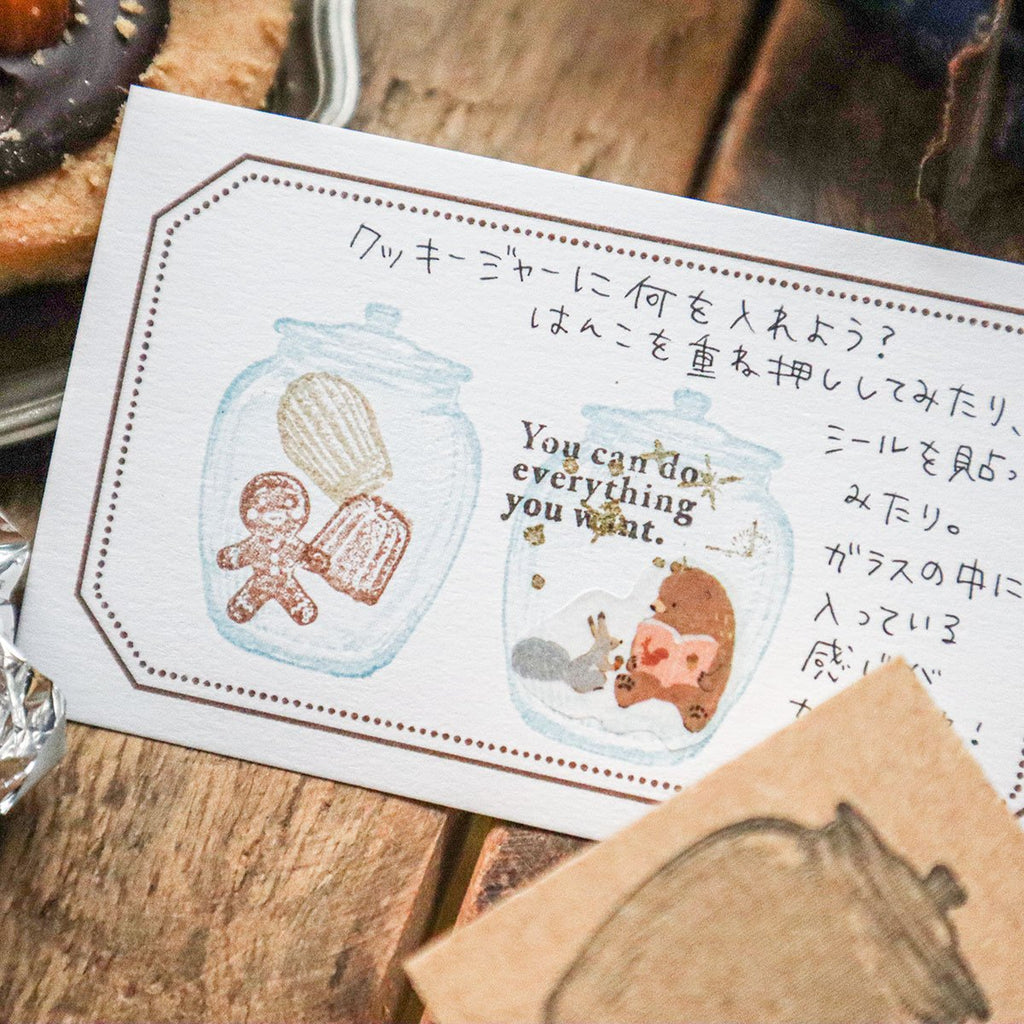 クッキージャーに何を入れよう?
はんこを重ね押ししてみたり、
シールを貼っ
みたり。
ガラスの中に
入っている
You can do
everything
you want.